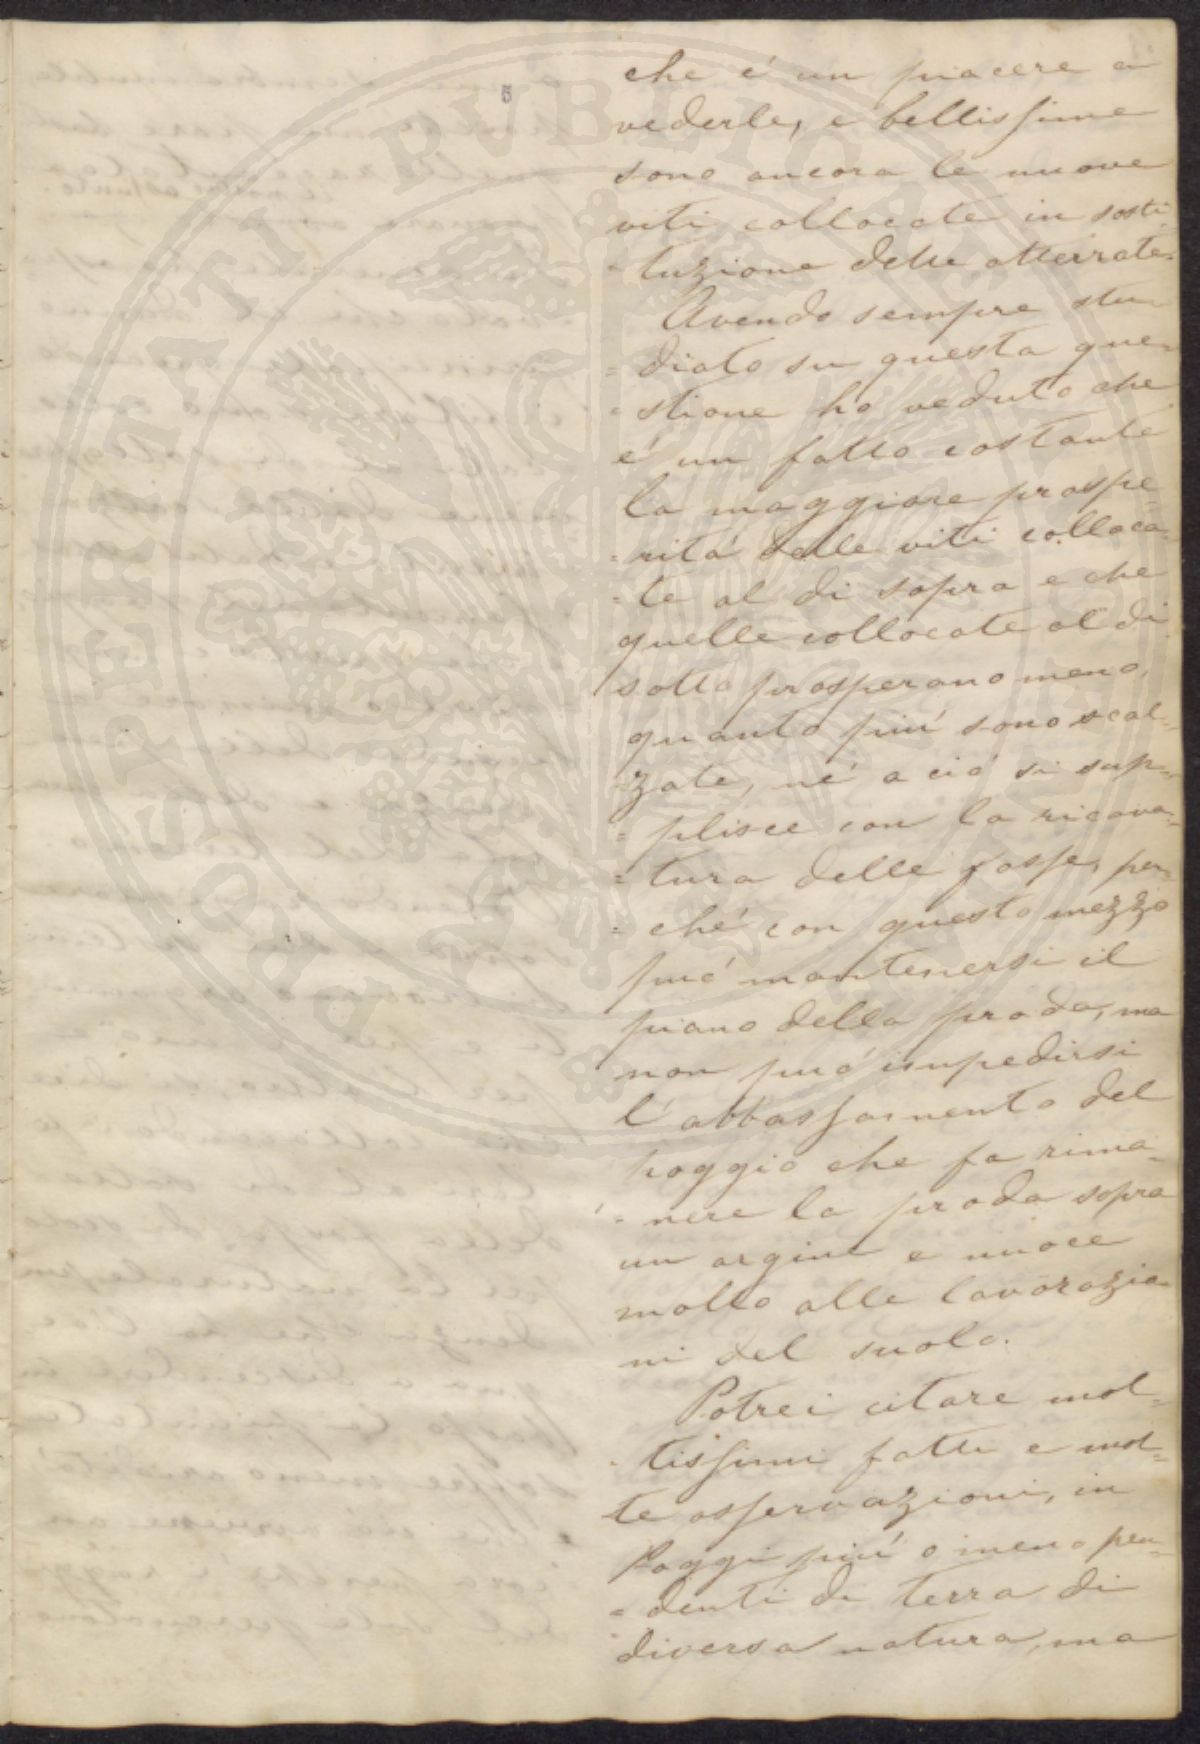 5
che é un piacere a
vederle, e bellissime
sono ancora le nuove
viti collocate in sosti
=tuzione delle atterrate.
Avendo sempre stu=
=diato su questa que=
=stione ho veduto che
é un fatto costante
la maggiore prospe=
=ritá delle viti colloca=
=te al di sopra e che
quelle collocate al di
sotto prosperano meno,
quanto piú sono scal=
zate, né a ció si sup=
=plisce con la ricava=
=tura delle fosse, per=
=ché con questo mezzo
puó mantenersi il
piano della proda, ma
non puó impedirsi
l'abbassamento del
poggio che fa rima=
=nere la proda sopra
un argine e nuoce
molto alle lavorazio=
ni del suolo.
Potrei citare mol=
=tissimi fatti e mol=
te osservazioni, in
Poggi piú o meno pen=
=denti di terra di
diversa natura, ma
PROSPERITATI PVBLICAE AVGENDAE